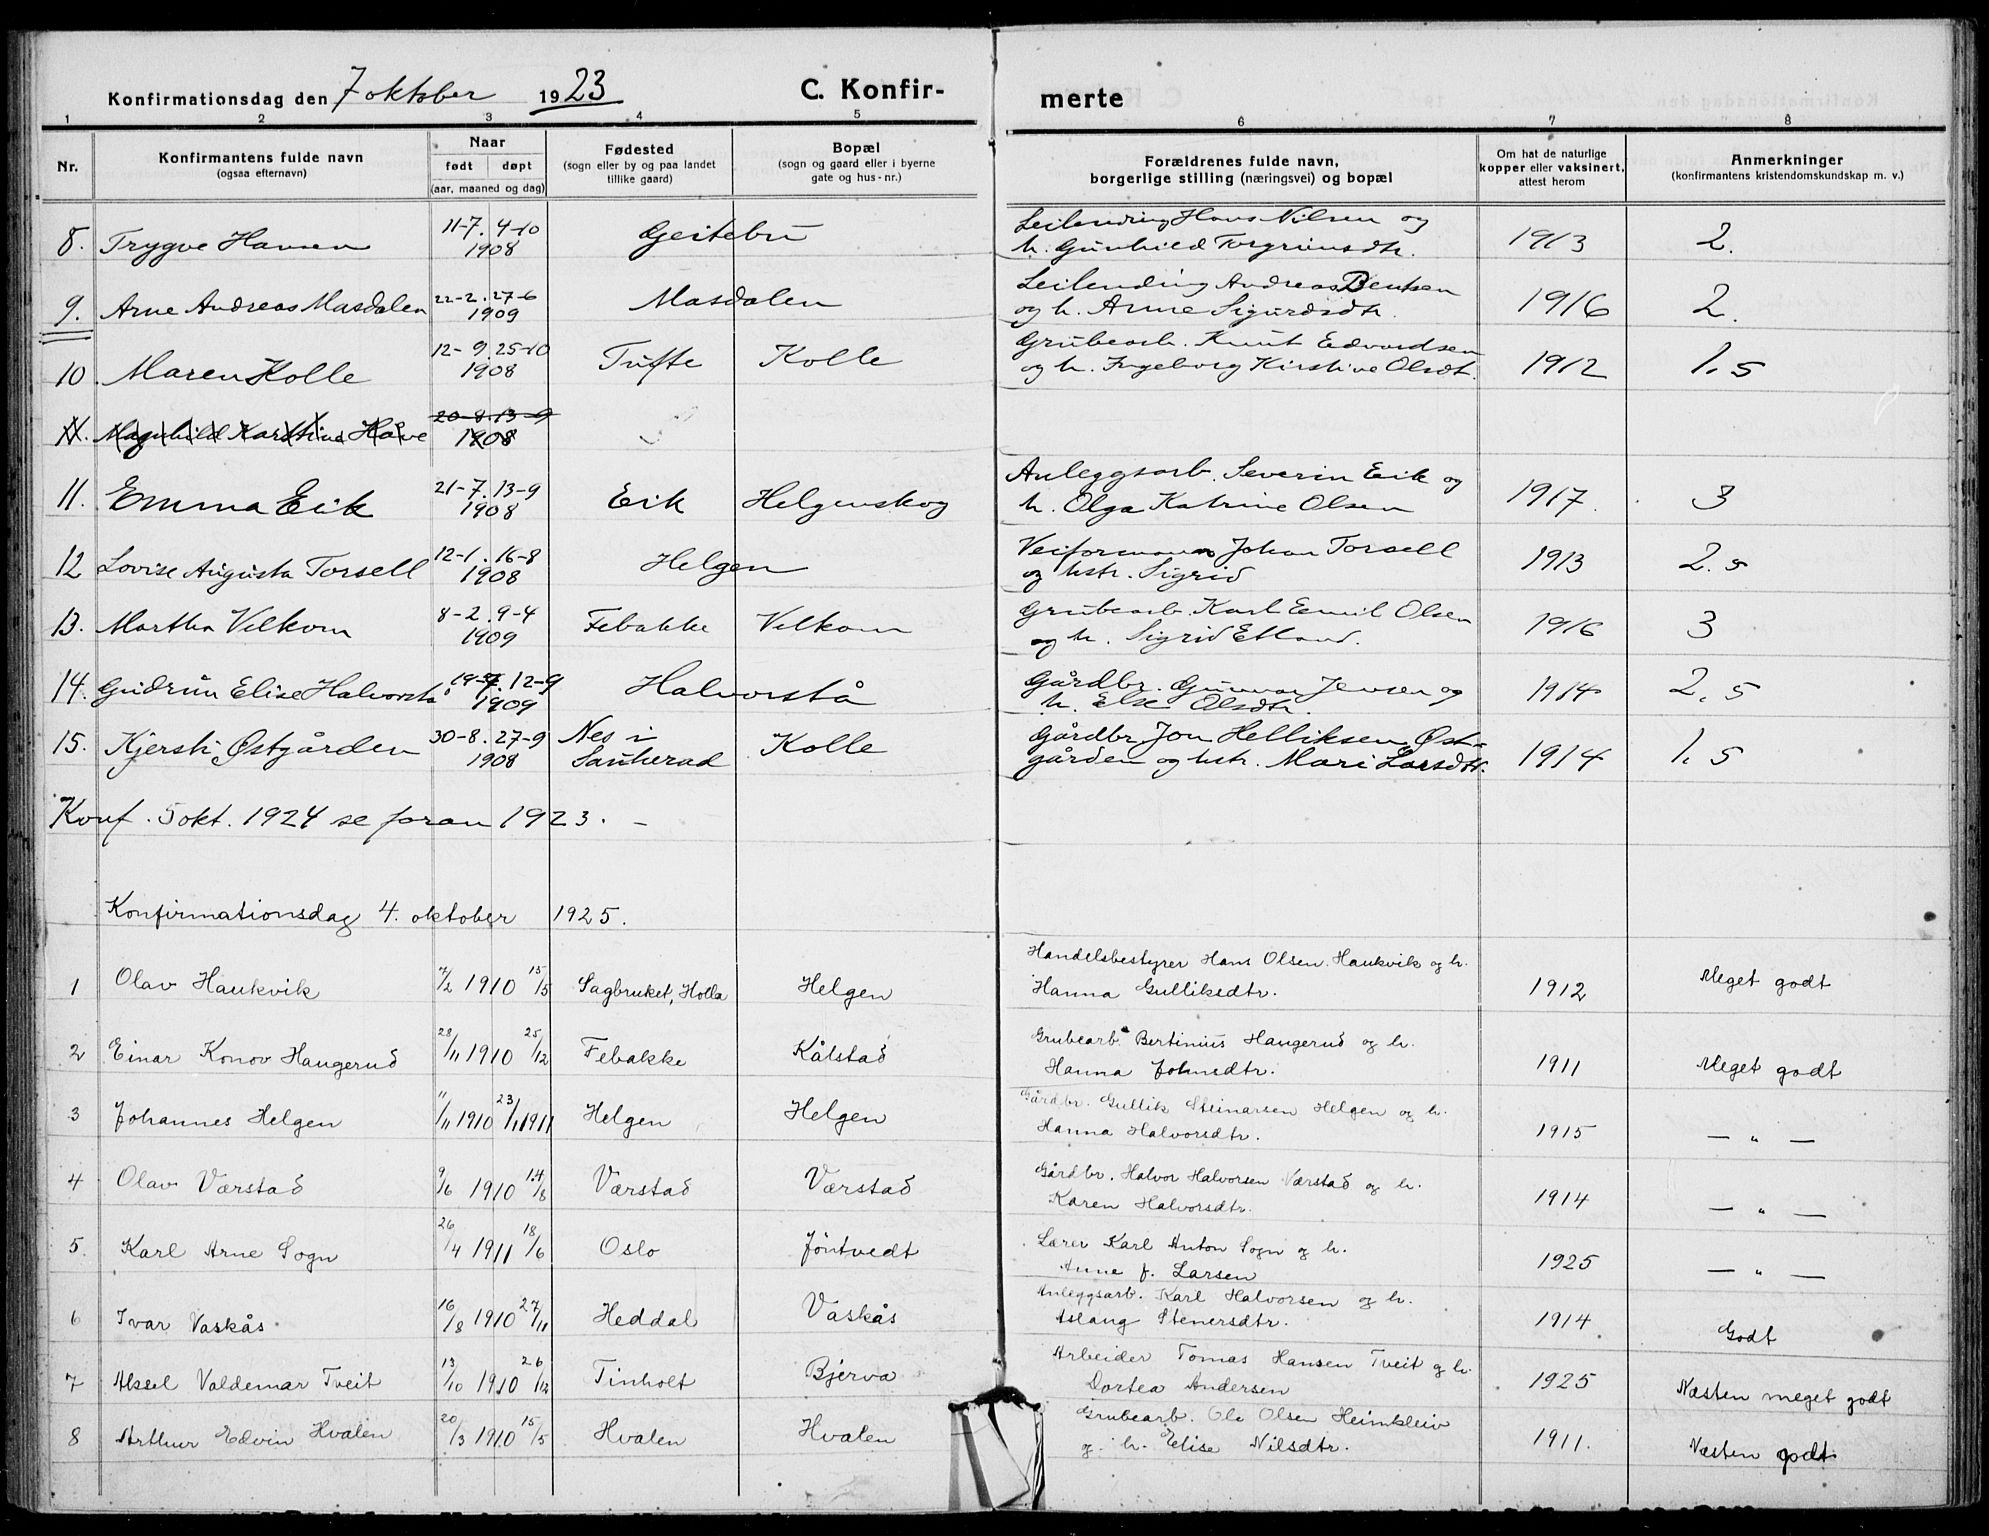 Konfirmationsdag den 7 oktober 1923 C. Konfir- merte
1 2 3 4 5 6 7 8
Nr. Konfirmantens fulde navn (ogsaa efternavn) Naar født døpt (aar, maaned og dag) Fødested (sogn eller by og paa landet tillike gaard) Bopæl (sogn og gaard eller i byerne gate og hus-nr.) Forældrenes fulde navn, borgerlige stilling (næringsvei) og bopæl Om hat de naturlige kopper eller vaksinert, attest herom Anmerkninger (konfirmantens kristendomskundskap m. v.)
11-7. 4-10 Leilending Hans Nilsen og
8. Trygve Hansen 1908 Geitebu h. Gunhild Torgrimsdtr. 1913 2.
22-2. 27-6 Leilending Andreas Bentsen
9. Arne Andreas Masdalen 1909 Masdalen og h. Anne Sigurdsdtr. 1916 2.
12-9. 25-10 Grubearb. Knut Edvardsen
10. Maren Kolle 1908 Tufte Kolle og h. Ingeborg Kirstine Olsdt. 1912 1,5
20-8. 13-9
11. Magnhild Kar Håve 1908
21-7. 13-9 Anleggsarb. Severin Eik og
11. Emma Eik 1908 Eik Helgenskog h. Olga Katrine Olsen 1917. 3
12-1. 16-8 Veiformann Johan Torsell
12 Lovise Augusta Torsell 1908 Helgen og hstr. Sigrid 1913 2.5
8-2. 9-4 Grubearb. Karl Emil Olsen
13. Martha Velkom 1909 Febakke Velkom og h. Sigrid Etland. 1916 3
19-7. 12-9 Gårdbr. Gunnar Jensen og
14. Gudrun Elise Halvorstå 1909 Halvorstå h. Else Olsdtr. 1914 2,5
30-8. 27-9 Nes i Gårdbr. Jon Helliksen Øst-
15. Kjersti Østgården 1908 Sauherad Kolle gården og hstr. Mari Larsdtr. 1914 1,5
Konf. 5 okt. 1924 se foran 1923. -
Konfirmationsdag 4. oktober 1925.
Handelsbestyrer Hans Olsen Haukvik og h.
1 Olav Haukvik 7/2 1910 15/5 Sagbruket, Holla Helgen Hanna Gulliksdtr. 1912 Meget godt
Grubearb. Bertinius Haugerud og h.
2 Einar Konov Haugerud 28/11 1910 25/12 Febakke Kålstad Hanna Johnsdtr. 1911 Meget godt
Gårdbr. Gullik Steinarsen Helgen og h.
3 Johannes Helgen 11/11 1910 23/1 1911 Helgen Helgen Hanna Halvorsdtr. 1915 — " —
Gårdbr. Halvor Halvorsen Værstad og h.
4 Olav Værstad 9/6 1910 14/8 Værstad Værstad Karen Halvorsdtr. 1914 — " —
Lærer Karl Anton Sogn og h.
5. Karl Arne Sogn 26/4 1911 18/6 Oslo Jöntvedt Anne J. Larsen 1925 — " —
Anleggsarb. Karl Halvorsen og h.
6 Ivar Vaskås 16/8 1910 27/11 Heddal Vaskås Aslaug Stenersdtr. 1914 Godt
Arbeider Tomas Hansen Tveit og h.
7 Aksel Valdemar Tveit 13/10 1910 26/12 Tinholt Bjerva Dortea Andersen 1925 Næsten meget godt
Grubearb. Ole Olsen Heimkleiv
8 Arthur Edvin Hvalen 20/3 1910 15/5 Hvalen Hvalen og h. Elise Nilsdtr. 1911. Næsten godt